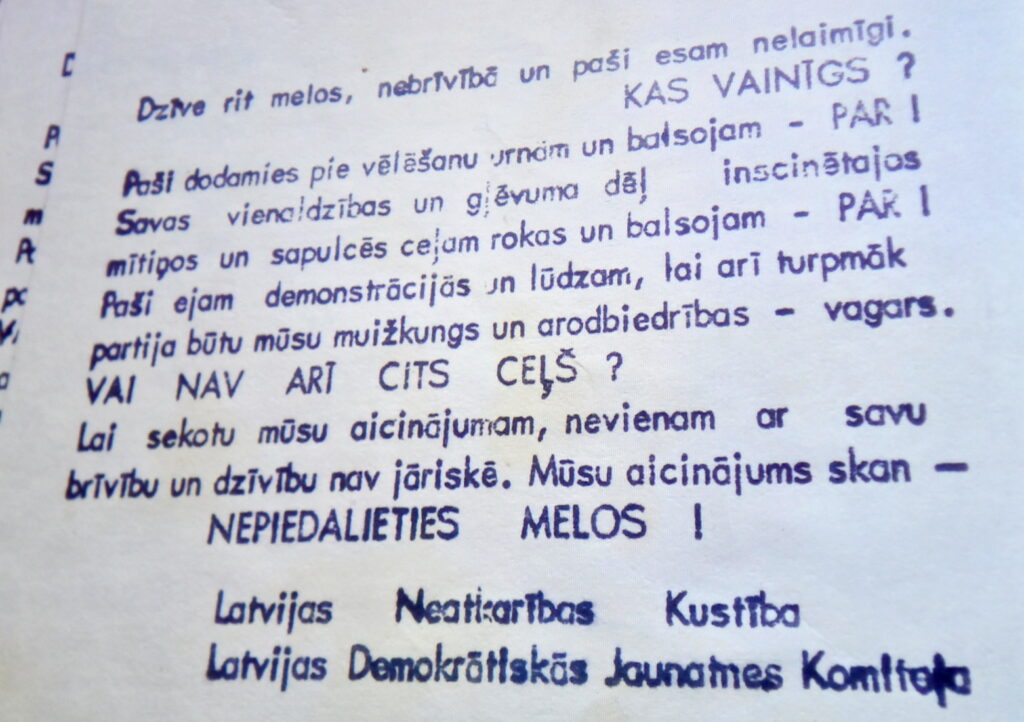 Dzīve rit melos, nebrīvībā un paši esam nelaimīgi.
KAS VAINĪGS ?
Paši dodamies pie vēlēšanu urnām un balsojam - PAR !
Savas vienaldzības un gļēvuma dēļ inscinētajos
mītiņos un sapulcēs ceļam rokas un balsojam - PAR !
Paši ejam demonstrācijās un lūdzam, lai arī turpmāk
partija būtu mūsu muižkungs un arodbiedrības - vagars.
VAI NAV ARĪ CITS CEĻŠ ?
Lai sekotu mūsu aicinājumam, nevienam ar savu
brīvību un dzīvību nav jāriskē. Mūsu aicinājums skan —
NEPIEDALIETIES MELOS !
Latvijas Neatkarības Kustība
Latvijas Demokrātiskās Jaunatnes Komiteja